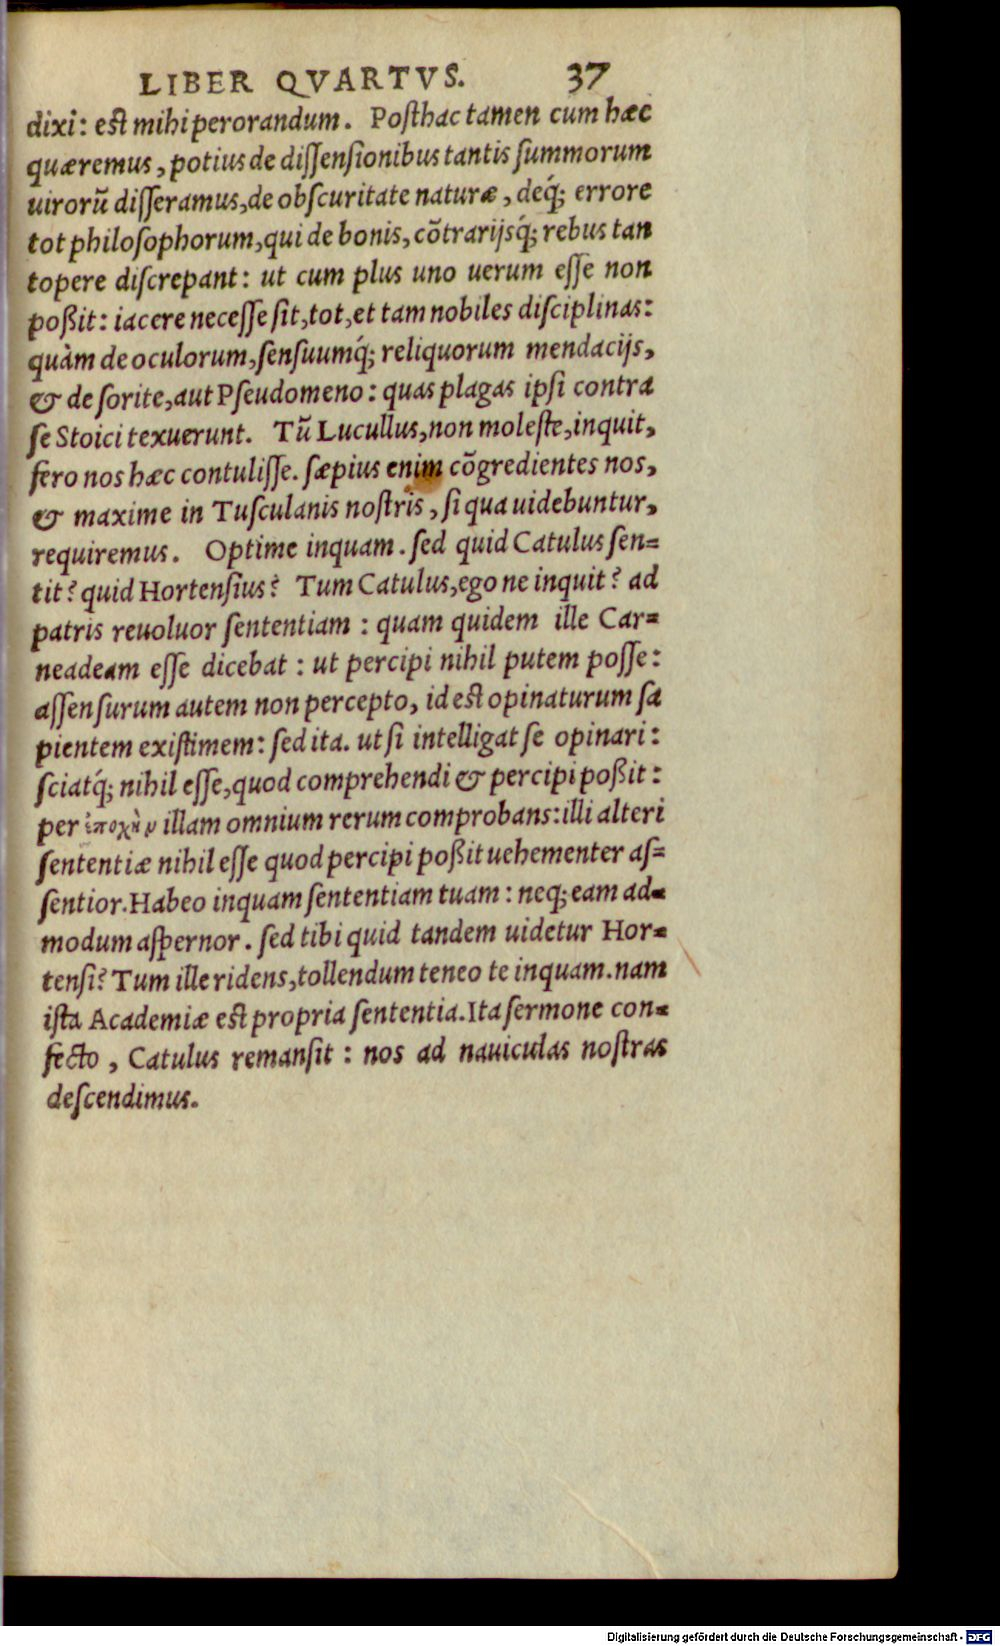 LIBER QVARTVS. 37
dixi: est mihi perorandum. Posthac tamen cum hæc
quæremus, potius de dissensionibus tantis summorum
uirorũ disseramus, de obscuritate naturæ, deq́; errore
tot philosophorum, qui de bonis, cõtrarijsq́; rebus tan
topere discrepant: ut cum plus uno uerum esse non
poßit: iacere necesse sit, tot, et tam nobiles disciplinas:
quàm de oculorum, sensuumq́; reliquorum mendacijs,
& de sorite, aut Pseudomeno: quas plagas ipsi contra
se Stoici texuerunt. Tũ Lucullus, non moleste, inquit,
fero nos hæc contulisse. sæpius enim cõgredientes nos,
& maxime in Tusculanis nostris, si qua uidebuntur,
requiremus. Optime inquam. sed quid Catulus sen=
tit? quid Hortensius? Tum Catulus, ego ne inquit? ad
patris reuoluor sententiam: quam quidem ille Car=
neadeam esse dicebat: ut percipi nihil putem posse:
assensurum autem non percepto, id est opinaturum sa
pientem existimem: sed ita. ut si intelligat se opinari:
sciatq́; nihil esse, quod comprehendi & percipi poßit:
per ἐποχὴν illam omnium rerum comprobans: illi alteri
sententiæ nihil esse quod percipi poßit uehementer as=
sentior. Habeo inquam sententiam tuam: neq; eam ad=
modum aspernor. sed tibi quid tandem uidetur Hor=
tensi? Tum ille ridens, tollendum teneo te inquam. nam
ista Academiæ est propria sententia. Ita sermone con=
fecto, Catulus remansit: nos ad nauiculas nostras
descendimus.
Digitalisierung gefördert durch die Deutsche Forschungsgemeinschaft - DFG